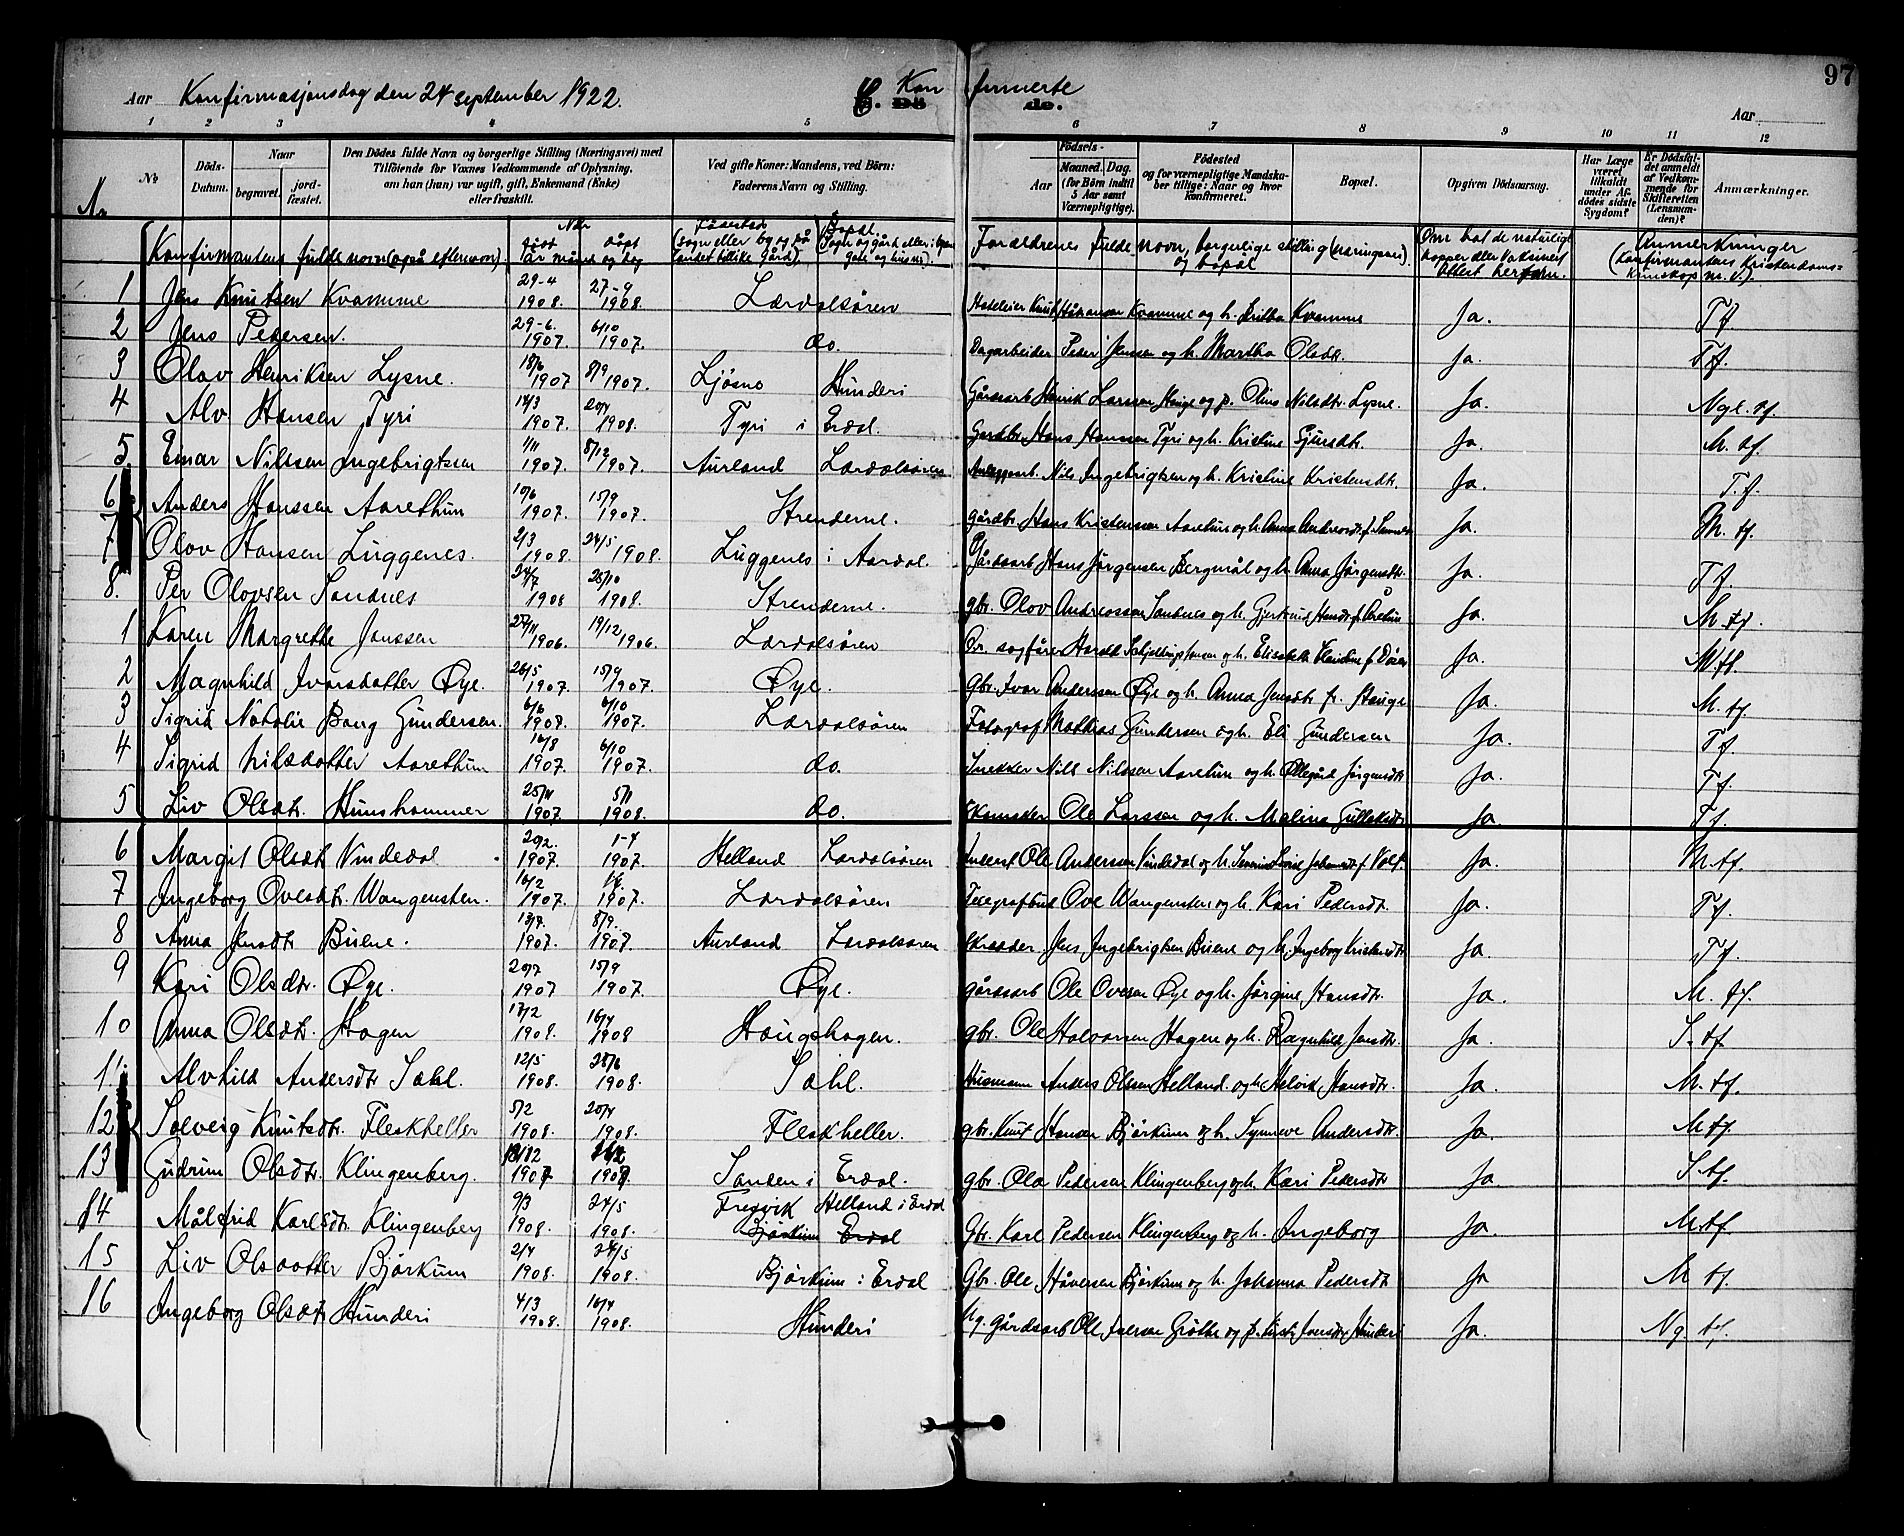 97
Aar Konfirmasjonsdag den 24 september 1922.
C. Konfirmerte
Dö de.
Aar
1 2 3 4 5 6 7 8 9 10 11 12
No Döds-Datum. Naar begravet. jord-fæstet. Den Dödes fulde Navn og borgerlige Stilling (Næringsvei) med Tilföiende for Voxnes Vedkommende af Oplysning, om han (hun) var ugift, gift, Enkemand (Enke) eller fraskilt. Ved gifte Koner: Mandens, ved Börn: Faderens Navn og Stilling. Födsels- Aar Maaned. Dag. (for Börn indtil 5 Aar samt Værnepligtige). Födested og for værnepligtige Mandskaber tillige: Naar og hvor konfirmeret. Bopæl. Opgiven Dödsaarsag. Har Læge været tilkaldt under Afdödes sidste Sygdom? Er Dödsfaldet anmeldt af Vedkommende for Skifteretten (Lensmanden)? Anmærkninger.
Nr
Konfirmantens fulde navn (også efternavn). Når født døpt år måned og dag Fødested (sogn eller by og på landet tillike gård) Bopæl. (Sogn og gård eller i byen gate og husnr.) Forældrenes fulde navn, borgerlige stilling (næringsvei) og bopæl Om hat de naturlige kopper eller vaksinert Attest herfor. Anmerkninger (konfirmantens kristendoms=kunskap m.v.)
1 Jens Knutsen Kvamme 29-4 1908. 27-9 1908. Lærdalsøren Knut Håkonson Kvamme og h. Kvamme Ja. Tf
2 Jens Pedersen. 29-6. 1907. 6/10 1907. do. Dagarbeider Peder Jensen og h. Martha Olsdt. Ja. Tf.
3 Olav Henriksen Lysne. 18/6 1907 8/9 1907. Ljøsno Hunderi Gårdsarb Henrik Larssen Hauge og p. Olina Nilsdtr. Lysne. Ja. Ngl. tf
4 Alv Hansen Tyri 14/3 1907. 20/4 1908. Tyri i Erdal. Gardbr. Hans Hanssen Tyri og h. Kristine Sjursdtr. Ja. M. tf.
5 Einar Nilssen Ingebrigtsen 1/11 1907. 8/12 1907. Aurland Lærdalsøren Nils Ingebrigtsen og h. Kristine Kristensdtr. Ja. T. f.
6 Anders Hanssen Aarethun 10/6 1907. 15/9 1907. Strenderne. Gårdbr. Hans Kristenssen Aaretun og h. Anna Ja. M. tf.
7 Olov Hansen Luggenes. 2/3 1908. 24/5 1908. Luggenes i Aardal. Gårdsarb Hans Jørgensen Bergmål og h. Anna Jørgensdtr. Ja. Tf
8. Per Olovsen Sandnes 24/7 1908 25/10 1908. Strenderne. gbr. Olov Andreassen Sandnes og h. Gjertrud Hansdtr. f. Åretun Ja. M. tf.
1 Karen Margrethe Janssen 1906. 19/12 1906. Lærdalsøren Or. sagfører Harald Schjeldrup Jansen og h. Elisabeth Ja. M. tf.
2 Magnhild Ivarsdotter Øye. 26/5 1907. 15/9 1907. Øye. Gbr. Ivar Anderssen Øye og h. Anna Jensdtr. f. Hauge Ja. M. tf
3 Sigrid Natalie Bang Gundersen. 6/6 1907. 6/10 1907. Lærdalsøren Fotograf Mathias Gundersen og h. Eli Gundersen Ja. Tf
4 Sigrid Nilsdotter Aarethun 16/8 1907. 6/10 1907. do. Snekker Nils Nilssen Aaretun og h. Ollegård Jørgensdtr. Ja. Tf.
5 Liv Olsdtr. Hunshammer 25/11 1907. 5/1 1908. do. Skomaker Ole Larssen og h. Malina Gulleksdtr. Ja. Tf.
6 Margit Olsdt. Vindedal 20/2. 1907. 1-4 1907. Helland Lærdalsøren Ole Andersen Vindedal og h. Ja. M. tf.
7 Ingeborg Ovesdtr. Wangensten. 16/2 1907. 1907. Lærdalsøren Telegrafbud Ove Wangensten og h. Kari Pedersdtr. Ja. Tf.
8 Anna Jensdtr. Buene. 13/7. 1907. 8/9. 1907. Aurland Lærdalsøren Skrædder. Jens Ingebrigtsen Buene og h. Ingeborg Kristensdtr. Ja. Tf.
9 Kari Olsdtr. Øye. 20/7 1907 15/9 1907. Øye. Gårdsarb Ole Ovesen Øye og h. Jørgine Hansdtr. Ja. M. tf.
10 Anna Olsdtr. Hagen 17/2 1908. 16/4 1908 Haugshagen. gbr. Ole Halvorsen Hagen og h. Ragnhild Jensdtr. Ja. S. tf.
11 Alvhild Andersdtr. Sæhl. 12/5 1908. 28/6 1908. Sæhl. Husmann Anders Olsen Helland og h. Helvik Hansdtr. Ja. M. tf.
12 Solveig Knutsdtr. Fleskheller 5/2 1908. 20/4 1908. Fleskheller. gbr. Knut Hansen Bjørkum og h. Synneve Andersdtr. Ja. M tf.
13 Gudrun Olsdtr. Klingenberg. 1907 1907 Sanden i Erdal. gbr. Ola Pedersen Klingenberg og h. Kari Pedersdtr. Ja. S. tf.
14 Målfrid Karlsdtr. Klingenberg 9/3 1908. 24/5 1908. Fresvik Helland i Erdal Bjørkum Erdal Gbr. Karl Pedersen Klingenberg og h. Ingeborg Ja. M. tf.
15 Liv Olsdotter Bjørkum 2/4 1908. 24/5 1908. Bjørkum i Erdal Gbr. Ole Håversen Bjørkum og h. Johanna Pedersdtr Ja M tf.
16 Ingeborg Olsdtr. Hunderi 4/3 1908. 16/4 1908. Hunderi Ug. Gårdsarb Ole Iversen Grøthe og p. Jensdtr. Hunderi Ja. Ng tf.